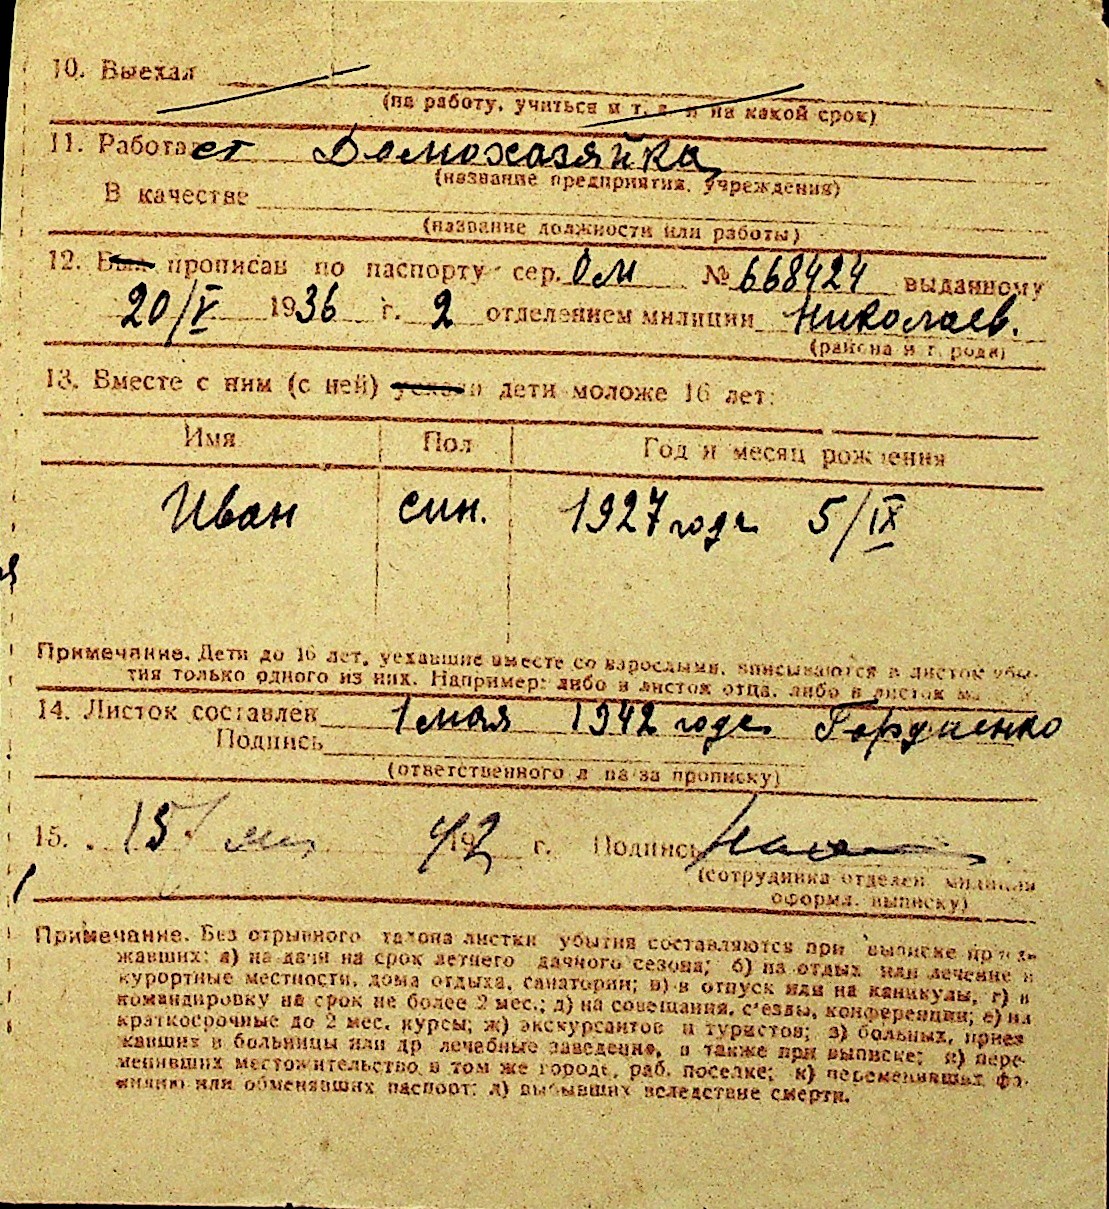 10. Выехал
(на работу, учиться и т. д. и на какой срок)
11. Работает Домохазяйка
(название предприятия, учреждения)
В качестве
(название должности или работы)
12. Был прописан по паспорту сер. ОМ № 668424 выданному
20/V 1936 г. 2 отделением милиции Николаев.
(района и города)
13. Вместе с ним (с ней) уехали дети моложе 16 лет:
Имя Пол Год и месяц рождения
Иван син. 1927 годе 5/IX
Примечание. Дети до 16 лет, уехавшие вместе со взрослыми, вписываются в листок убы-
тия только одного из них. Например: либо в листок отца, либо в листок
14. Листок составлен 1 мая 1942 годе
Подпись
(ответственного лица за прописку)
15. 15/ 1942 г. Подпись
(сотрудника отделен. милиции
оформл. выписку)
Примечание. Без отрывного талона листки убытия составляются при выписке приез-
жавших: а) на дачи на срок летнего дачного сезона; б) на отдых или лечение в
курортные местности, дома отдыха, санатории; в) в отпуск или на каникулы, г) в
командировку на срок не более 2 мес.; д) на совещания, съезды, конференции; е) на
краткосрочные до 2 мес. курсы; ж) экскурсантов и туристов; з) больных, приез
жавших в больницы или др лечебные заведения, а также при выписке; и) пере-
менивших местожительство в том же городе, раб. поселке; к) переменивших фа-
милию или обменявших паспорт; л) выбывших вследствие смерти.